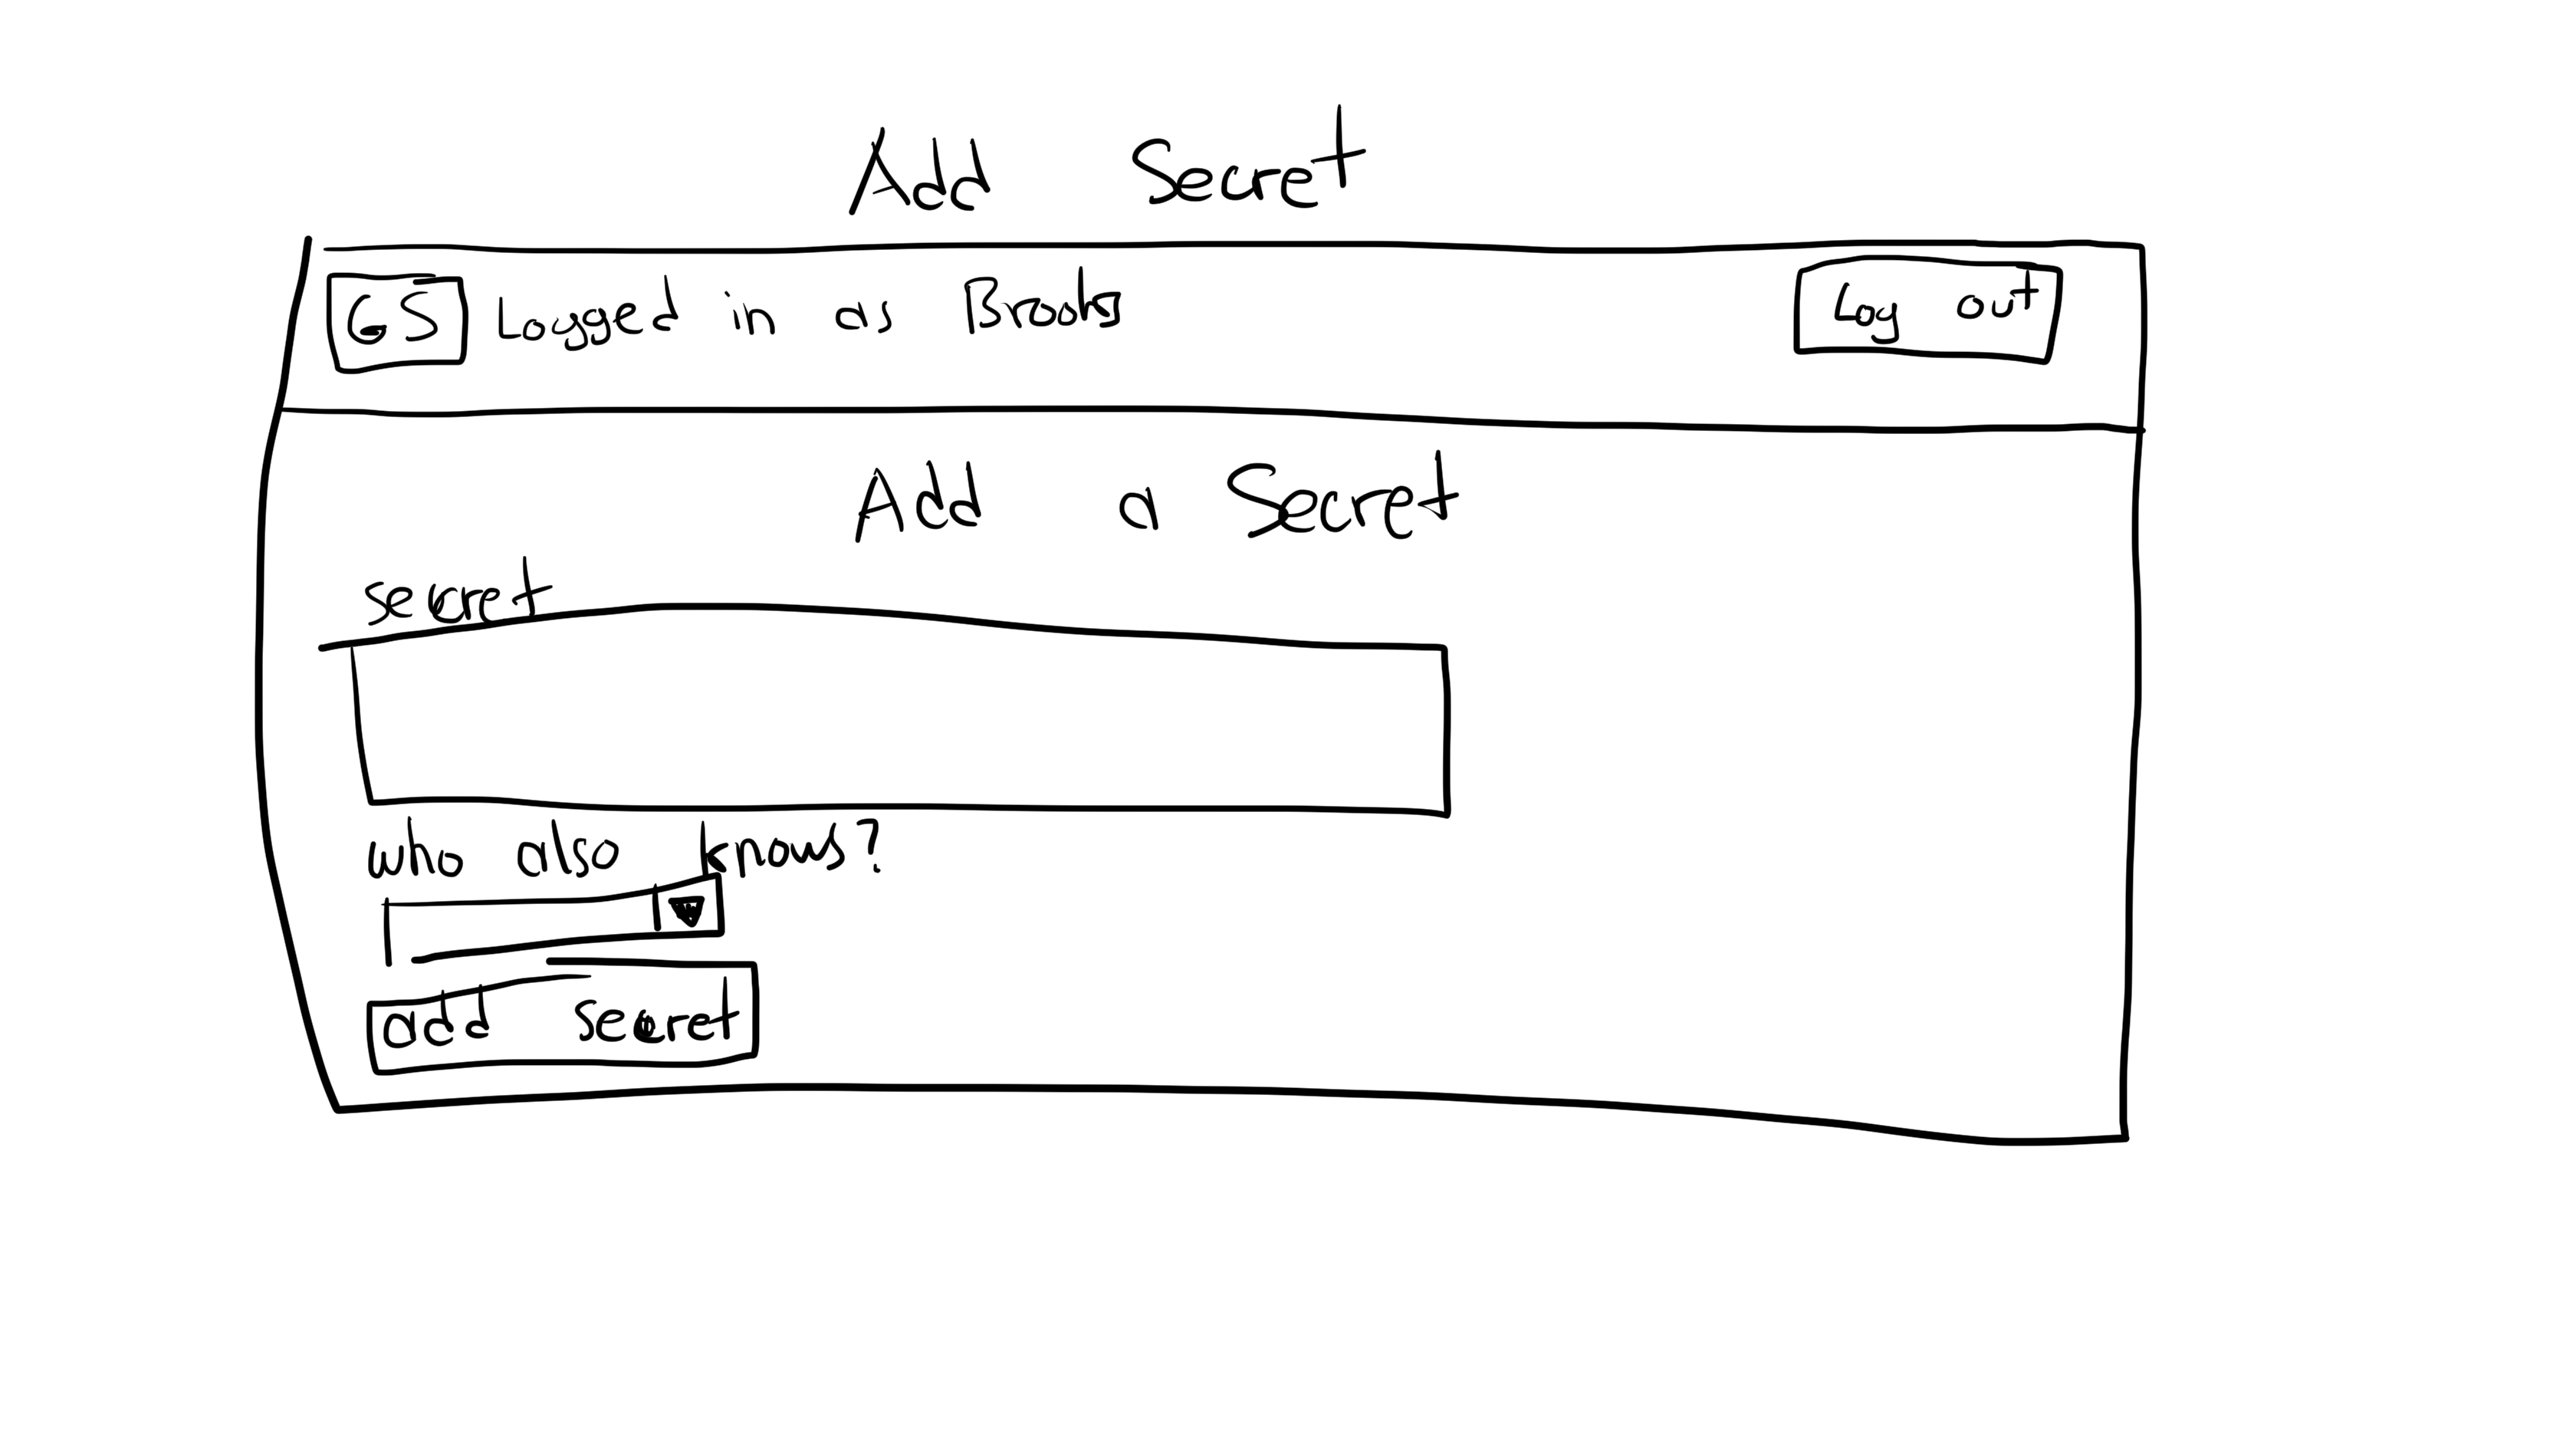 Add Secret
GS Logged in as Brooks Log out
Add a Secret
secret
who also knows?
add secret